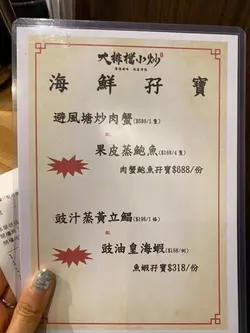 大排檔小炒
海鮮孖寶
避風塘炒肉蟹($598/1隻)
果皮蒸鮑魚($168/4隻)
肉蟹鮑魚孖寶$688/份
豉汁蒸黃立鯧($198/1條)
豉油皇海蝦($158/例)
魚蝦孖寶$318/份